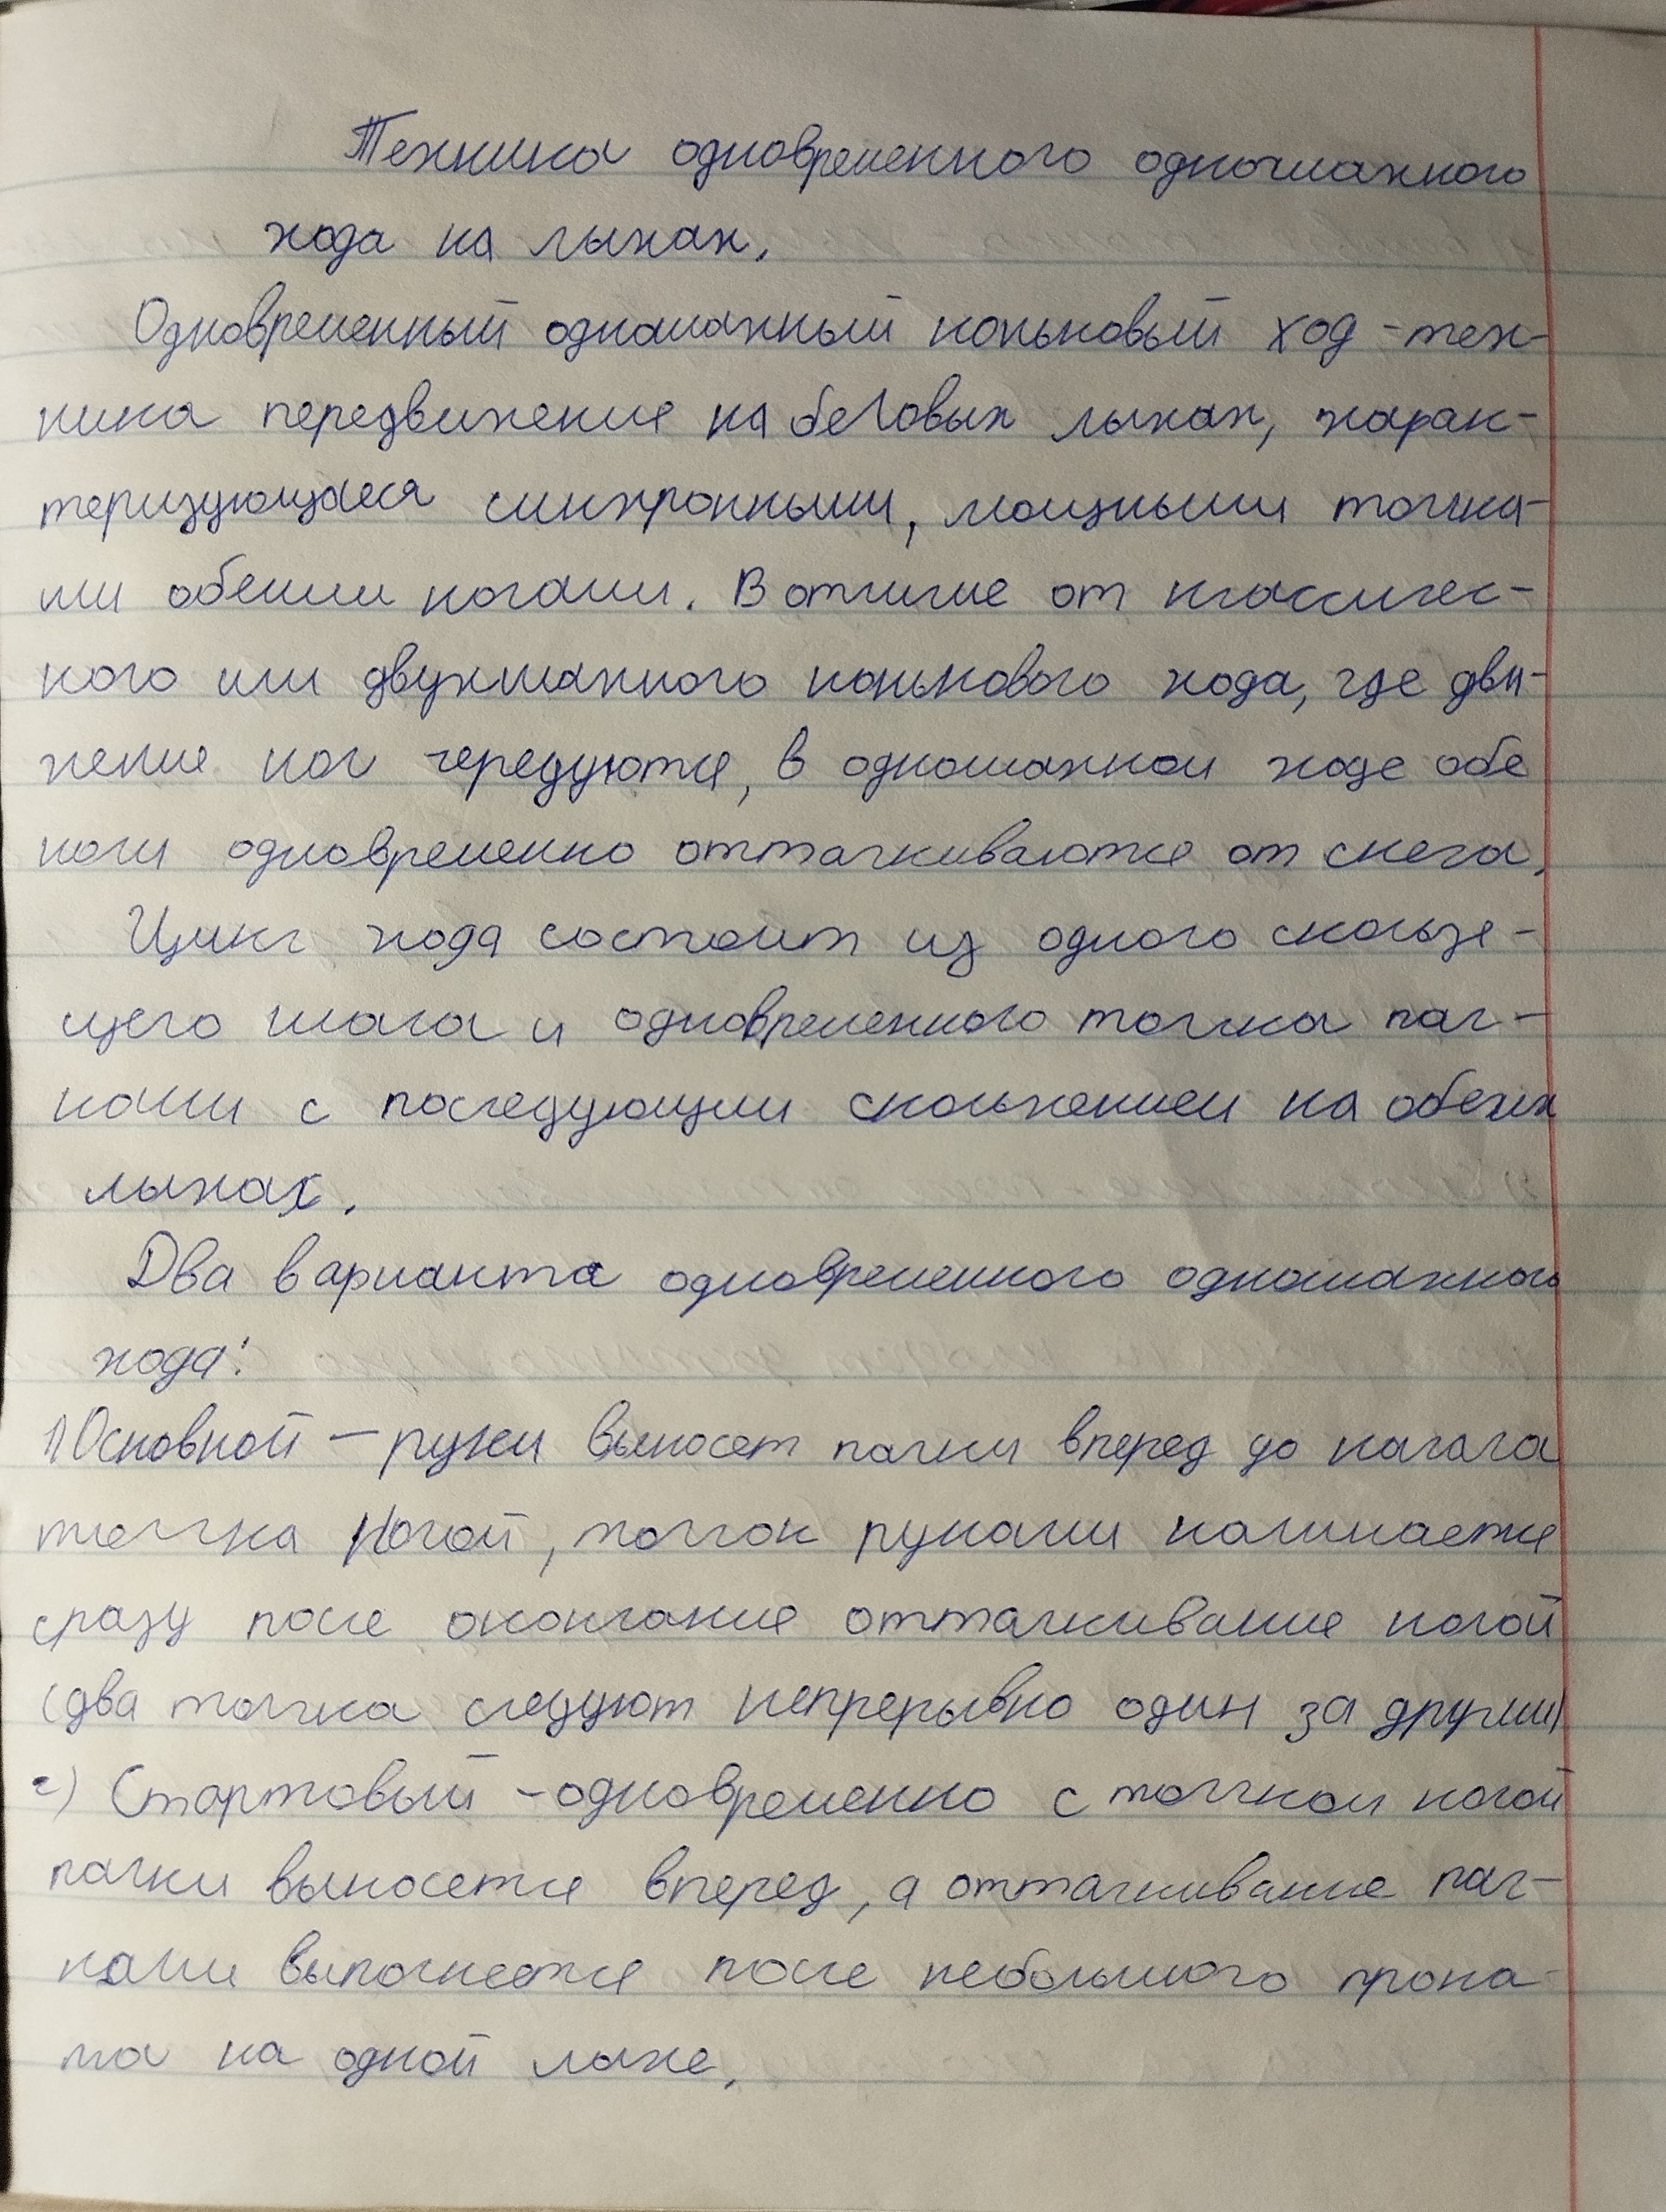 Техника одновременного одношажного
хода на лыжах.
Одновременный одношажный коньковый ход - тех-
ника передвижения на беговых лыжах, харак-
теризующаяся синхронными, мощными толчка-
ми обеими ногами. В отличие от классичес-
кого или двухшажного конькового хода, где дви-
жение ног чередуются, в одношажном ходе обе
ноги одновременно отталкиваются от снега.
Цикл хода состоит из одного скользя-
щего шага и одновременного толчка пал-
ками с последующим скольжением на обеих
лыжах.
Два варианта одновременного одношажного
хода:
1) Основной — руки выносят палки вперед до начала
толчка ногой, толчок руками начинается
сразу после окончания отталкивания ногой
(два толчка следуют непрерывно один за другим)
2) Стартовый - одновременно с толчком ногой
палки выносятся вперед, а отталкивание пал-
ками выполняется после небольшого прока-
та на одной лыже.